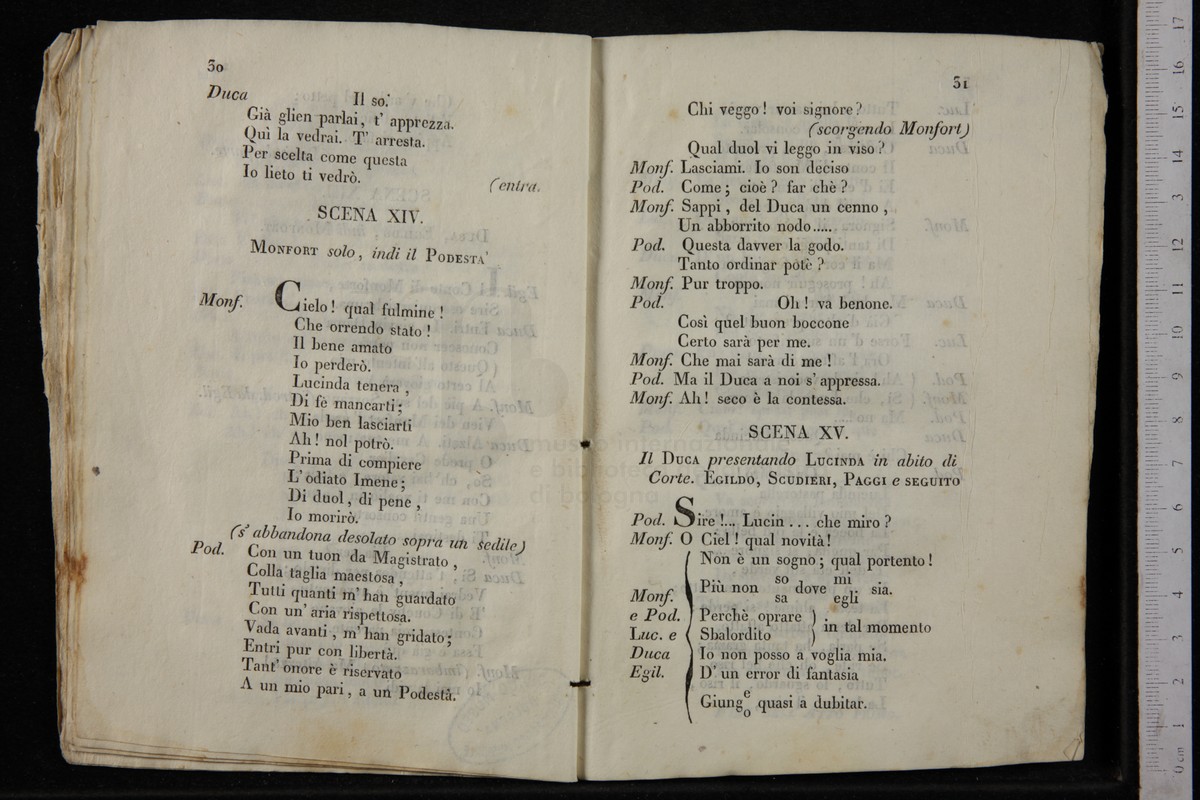 30
Duca Il so.
Già glien parlai, t' apprezza.
Quì la vedrai. T' arresta.
Per scelta come questa
Io lieto ti vedrò.
(entra.
SCENA XIV.
MONFORT solo, indi il PODESTA'
Monf. Cielo! qual fulmine!
Che orrendo stato!
Il bene amato
Io perderò.
Lucinda tenera,
Di fè mancarti;
Mio ben lasciarti
Ah! nol potrò.
Prima di compiere
L'odiato Imene;
Di duol, di pene,
Io morirò.
(s' abbandona desolato sopra un sedile)
Pod. Con un tuon da Magistrato,
Colla taglia maestosa,
Tutti quanti m' han guardato
Con un' aria rispettosa.
Vada avanti, m' han gridato;
Entri pur con libertà.
Tant' onore è riservato
A un mio pari, a un Podestà.
31
Chi veggo! voi signore?
(scorgendo Monfort)
Qual duol vi leggo in viso?
Monf. Lasciami. Io son deciso
Pod. Come; cioè? far chè?
Monf. Sappi, del Duca un cenno,
Un abborrito nodo.....
Pod. Questa davver la godo.
Tanto ordinar potè?
Monf. Pur troppo.
Pod. Oh! va benone.
Così quel buon boccone
Certo sarà per me.
Monf. Che mai sarà di me!
Pod. Ma il Duca a noi s' appressa.
Monf. Ah! seco è la contessa.
SCENA XV.
Il DUCA presentando LUCINDA in abito di
Corte. EGILDO, SCUDIERI, PAGGI e SEGUITO
Pod. Sire!... Lucin... che miro?
Monf. O Ciel! qual novità!
Non è un sogno; qual portento!
Monf. Più non so sa dove mi egli sia.
e Pod. Perchè oprare
Luc. e Sbalordito in tal momento
Duca Io non posso a voglia mia.
Egil. D' un error di fantasia
Giunge o quasi a dubitar.
museo internazionale
e biblioteca
di bologna